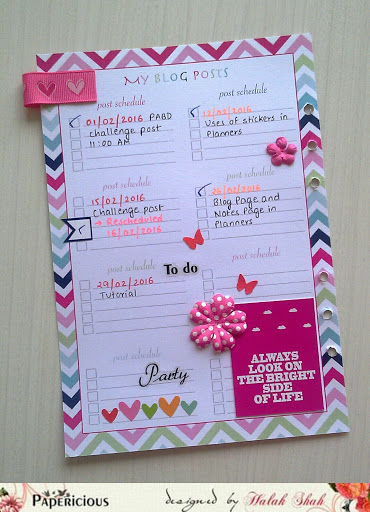 MY BLOG POSTS
post schedule
01/02/2016 PABD
challenge post
11:00 AM
post schedule
12/02/2016
Uses of stickers in
Planners
post schedule
15/02/2016
Challenge post
→ Rescheduled
16/02/2016
post schedule
26/02/2016
Blog Page and
Notes Page in
Planners
post schedule
29/02/2016
Tutorial
To do
post schedule
post schedule
Party
ALWAYS
LOOK ON
THE BRIGHT
SIDE
OF LIFE
PAPERICIOUS
designed by Halak Shah